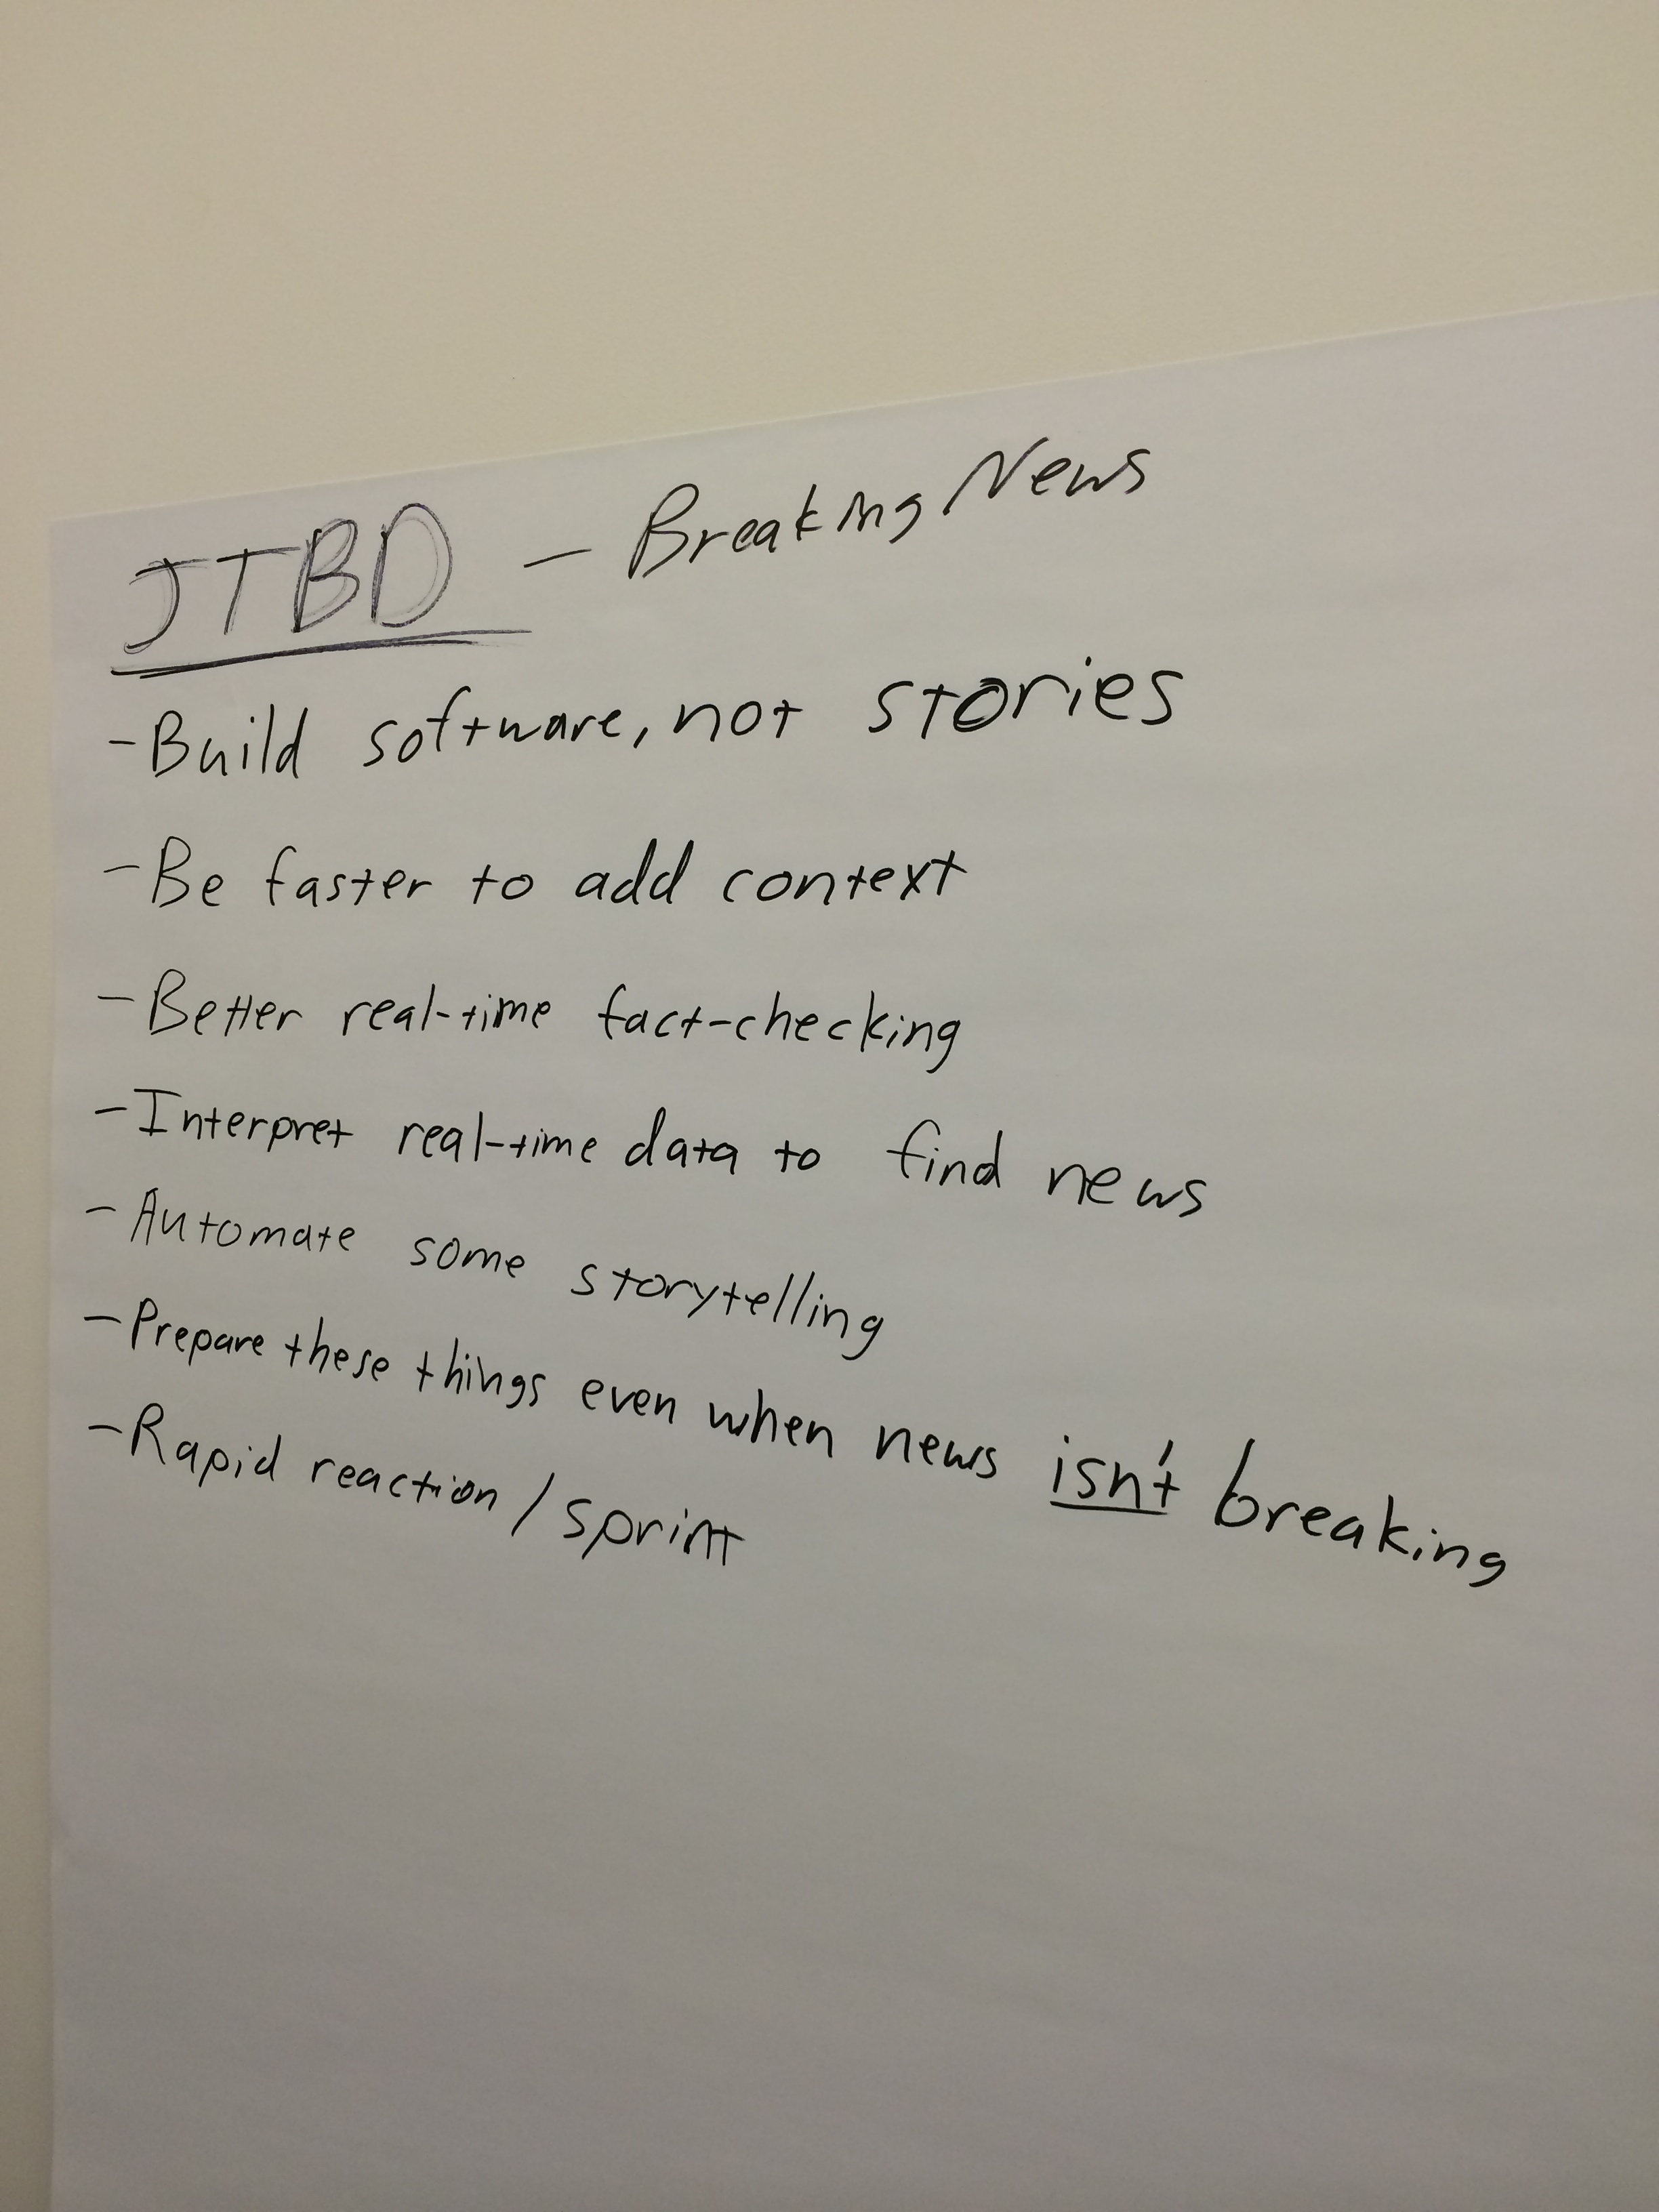 JTBD - Breaking News
- Build software, not stories
- Be faster to add context
- Better real-time fact-checking
- Interpret real-time data to find news
- Automate some storytelling
- Prepare these things even when news isn't breaking
- Rapid reaction / sprint